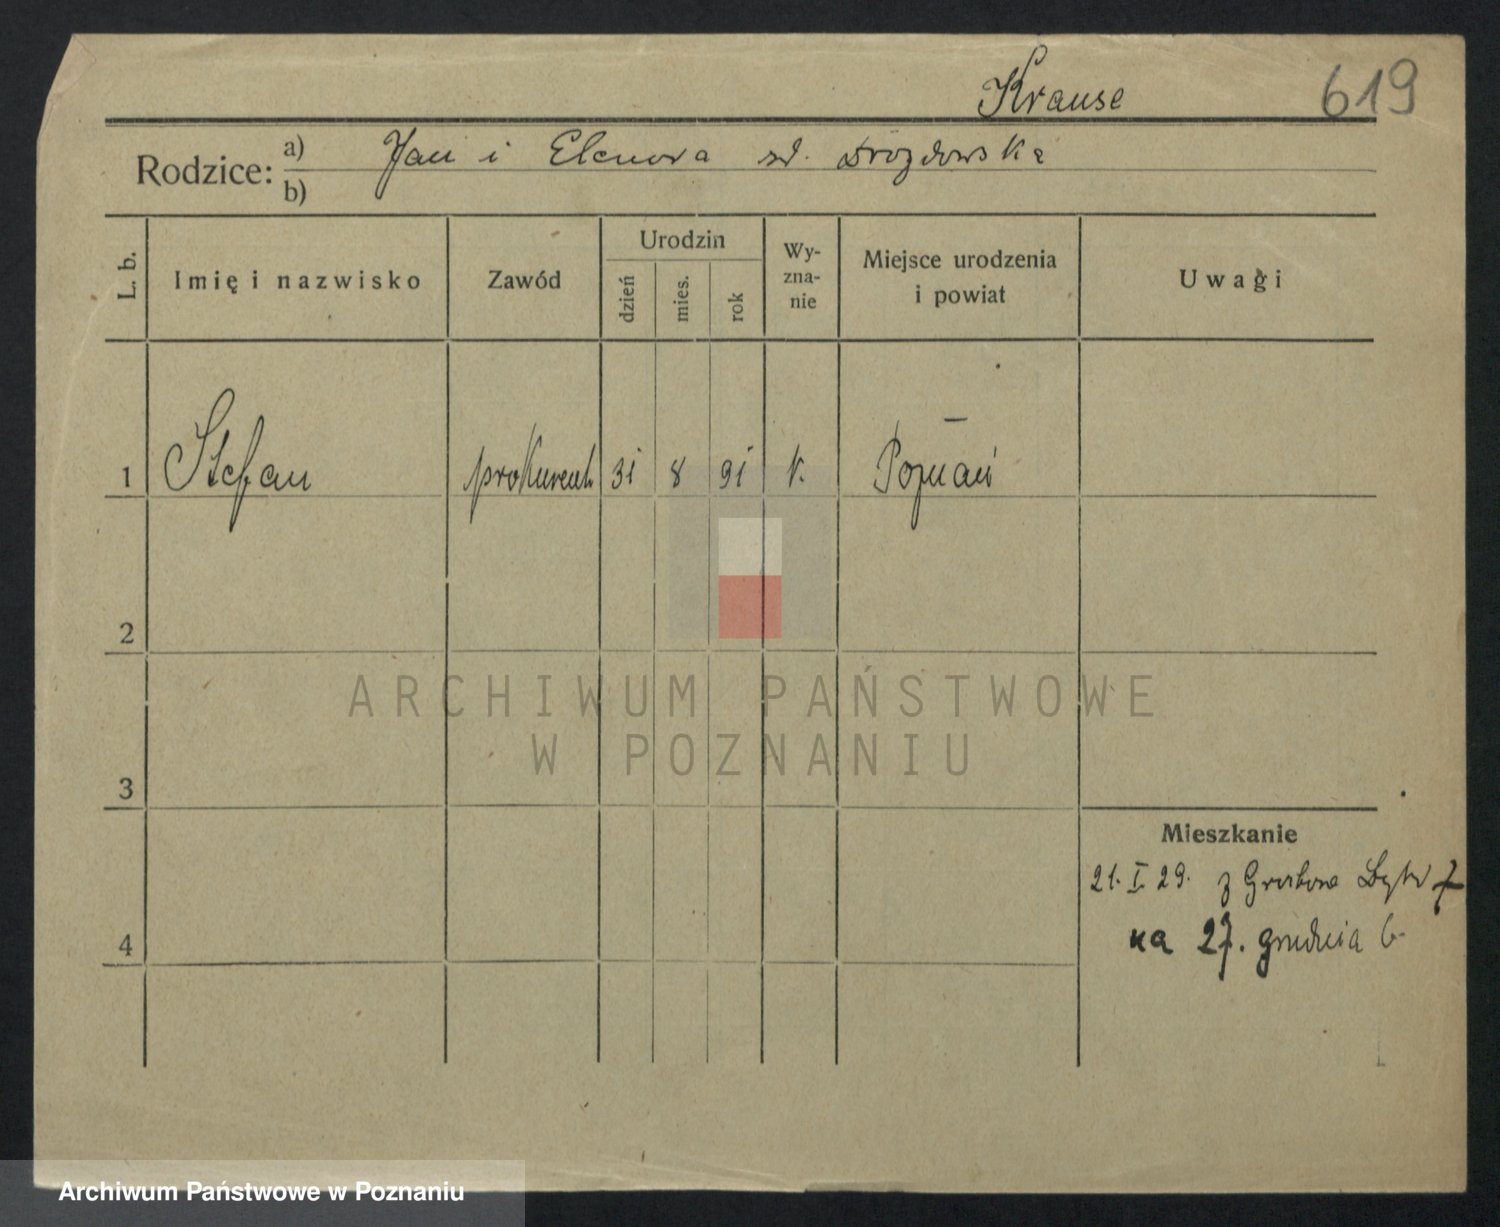 Krause 619
Rodzice: a) Jan i Elenora zd. Drozdowska
b)
L. b.
Imię i nazwisko
Zawód
Urodzin
dzień
mies.
rok
Wy-
zna-
nie
Miejsce urodzenia
i powiat
Uwagi
1 Stefan prokurent 31 8 91 k. Poznań
2
3
4
Mieszkanie
21. I. 29. z 7
na 27. grudnia 6
ARCHIWUM PAŃSTWOWE
W POZNANIU
Archiwum Państwowe w Poznaniu